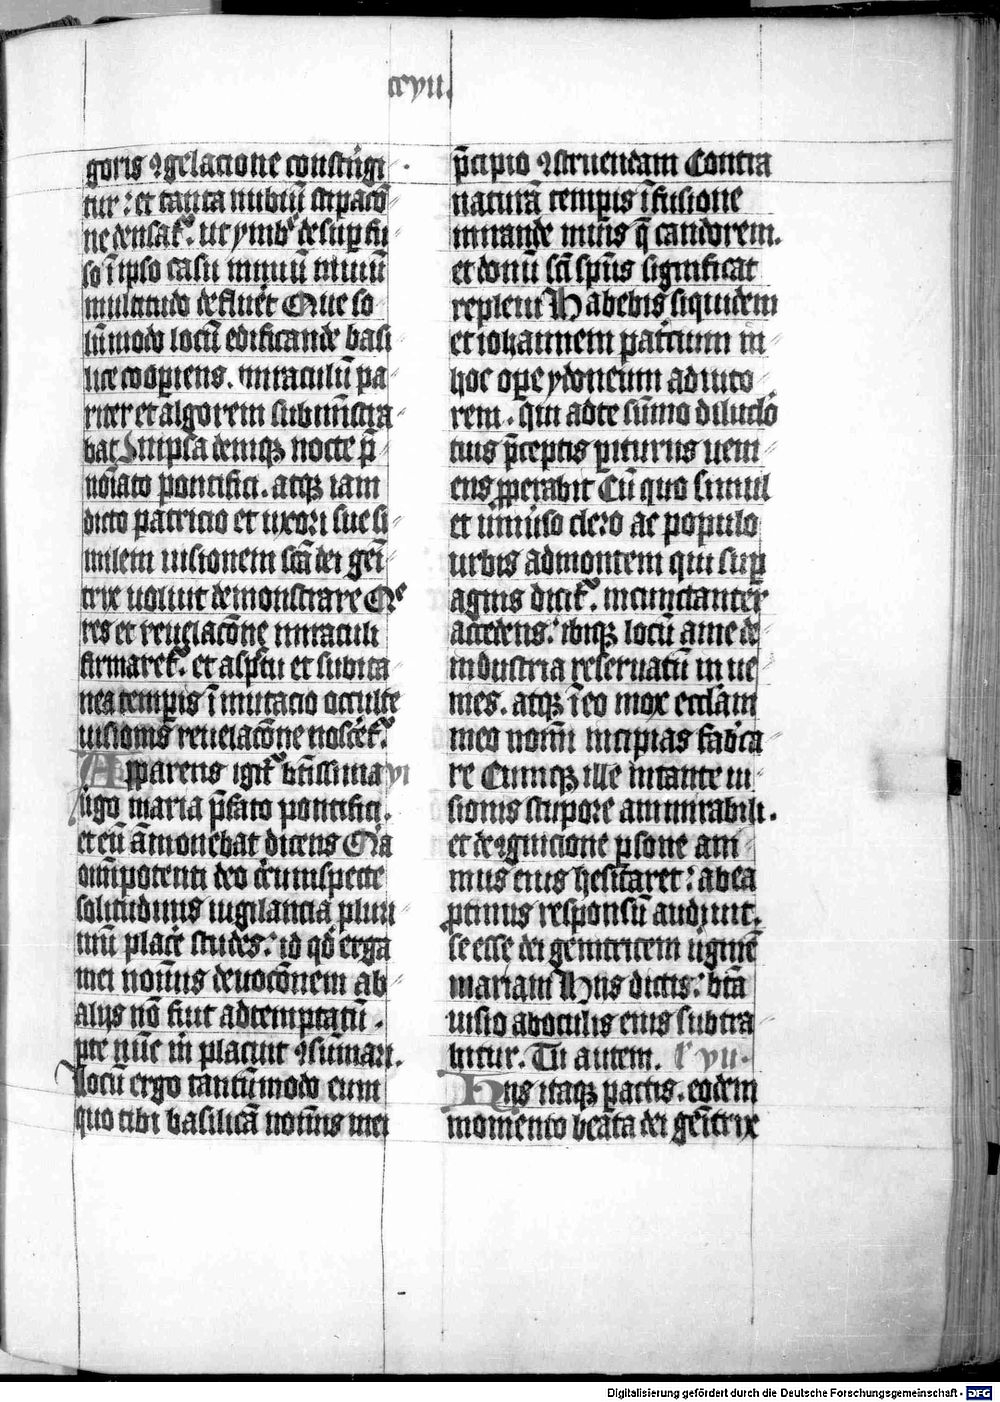 ccvii.
goris ꝯgelacione constrīgi
tur: et tanta nubiū stipacō
ne densat᷑. ut ymb᷑ desup fu
so ī ipso casu nimiū niuiū
multitudo defluēt Que so
lūmodo locū edificande basi
lice cooꝑiens. miraculū pa
riter et algorem submīstra
bat In ipsa deniqꝫ nocte p̄
noīato pontifici. atqꝫ iam
dicto patricio et uxori sue si
milem uisionem scā dei geī
trix uoluit demonstrare Q͛
res et reuelacōne miraculi
firmaret᷑. et aspc̄tu et subita
nea tempis ī mutacio occulte
uisionis reuelacōne noscet᷑.
Apparens igit᷑ btīssima vi
ugo maria p̄fato pontifici.
et eū āmonebat dicens Q̄a
oīmpotenti deo circumspecte
solitudinis uigilancia pluri
mū place studes: id qd̄ erga
mei noīnis deuocōnem ab
alijs nō fiut adtemptatū.
ꝑte nūc in placuit ꝯsūmari.
Locū ergo tantūmodo cum
quo tibi basilicā noīnis mei
p̄cipio ꝯstruendam Contra
naturā tempis īfusione
mirande niuis q̄ candorem.
et donū scī spūs significat
repleui Habebis siquidem
et iohannem patricium in
hoc oꝑe ydoneum adiuto
rem. qui ad te sūmo diluclo
tuis p̄ceptis pariturus ueni
ens ꝓperabit Cū quo simul
et uniūso clero ac populo
urbis ad montem qui suꝑ
agius dicit᷑. incunctanter
accedens: ibiqꝫ locū a me de
industria reseruatū in ue
nies. atqꝫ ī eo mox eccl̄am
meo noīni incipias fabrica
re Cumqꝫ ille in tante ui
sionis stupore ammirabili.
et de ꝯgnicione ꝑsone ani
mus eius hesitaret: ab ea
ꝓtinus responsū audiuit.
se esse dei genitricem uīginē
mariam Hijs dictis: btā
uisio ab oculis eius subtra
hitur. Tu autem. l᷑ vii.
Hijs itaqꝫ pactis. eodem
momento beata dei geītrix
Digitalisierung gefördert durch die Deutsche Forschungsgemeinschaft - DFG